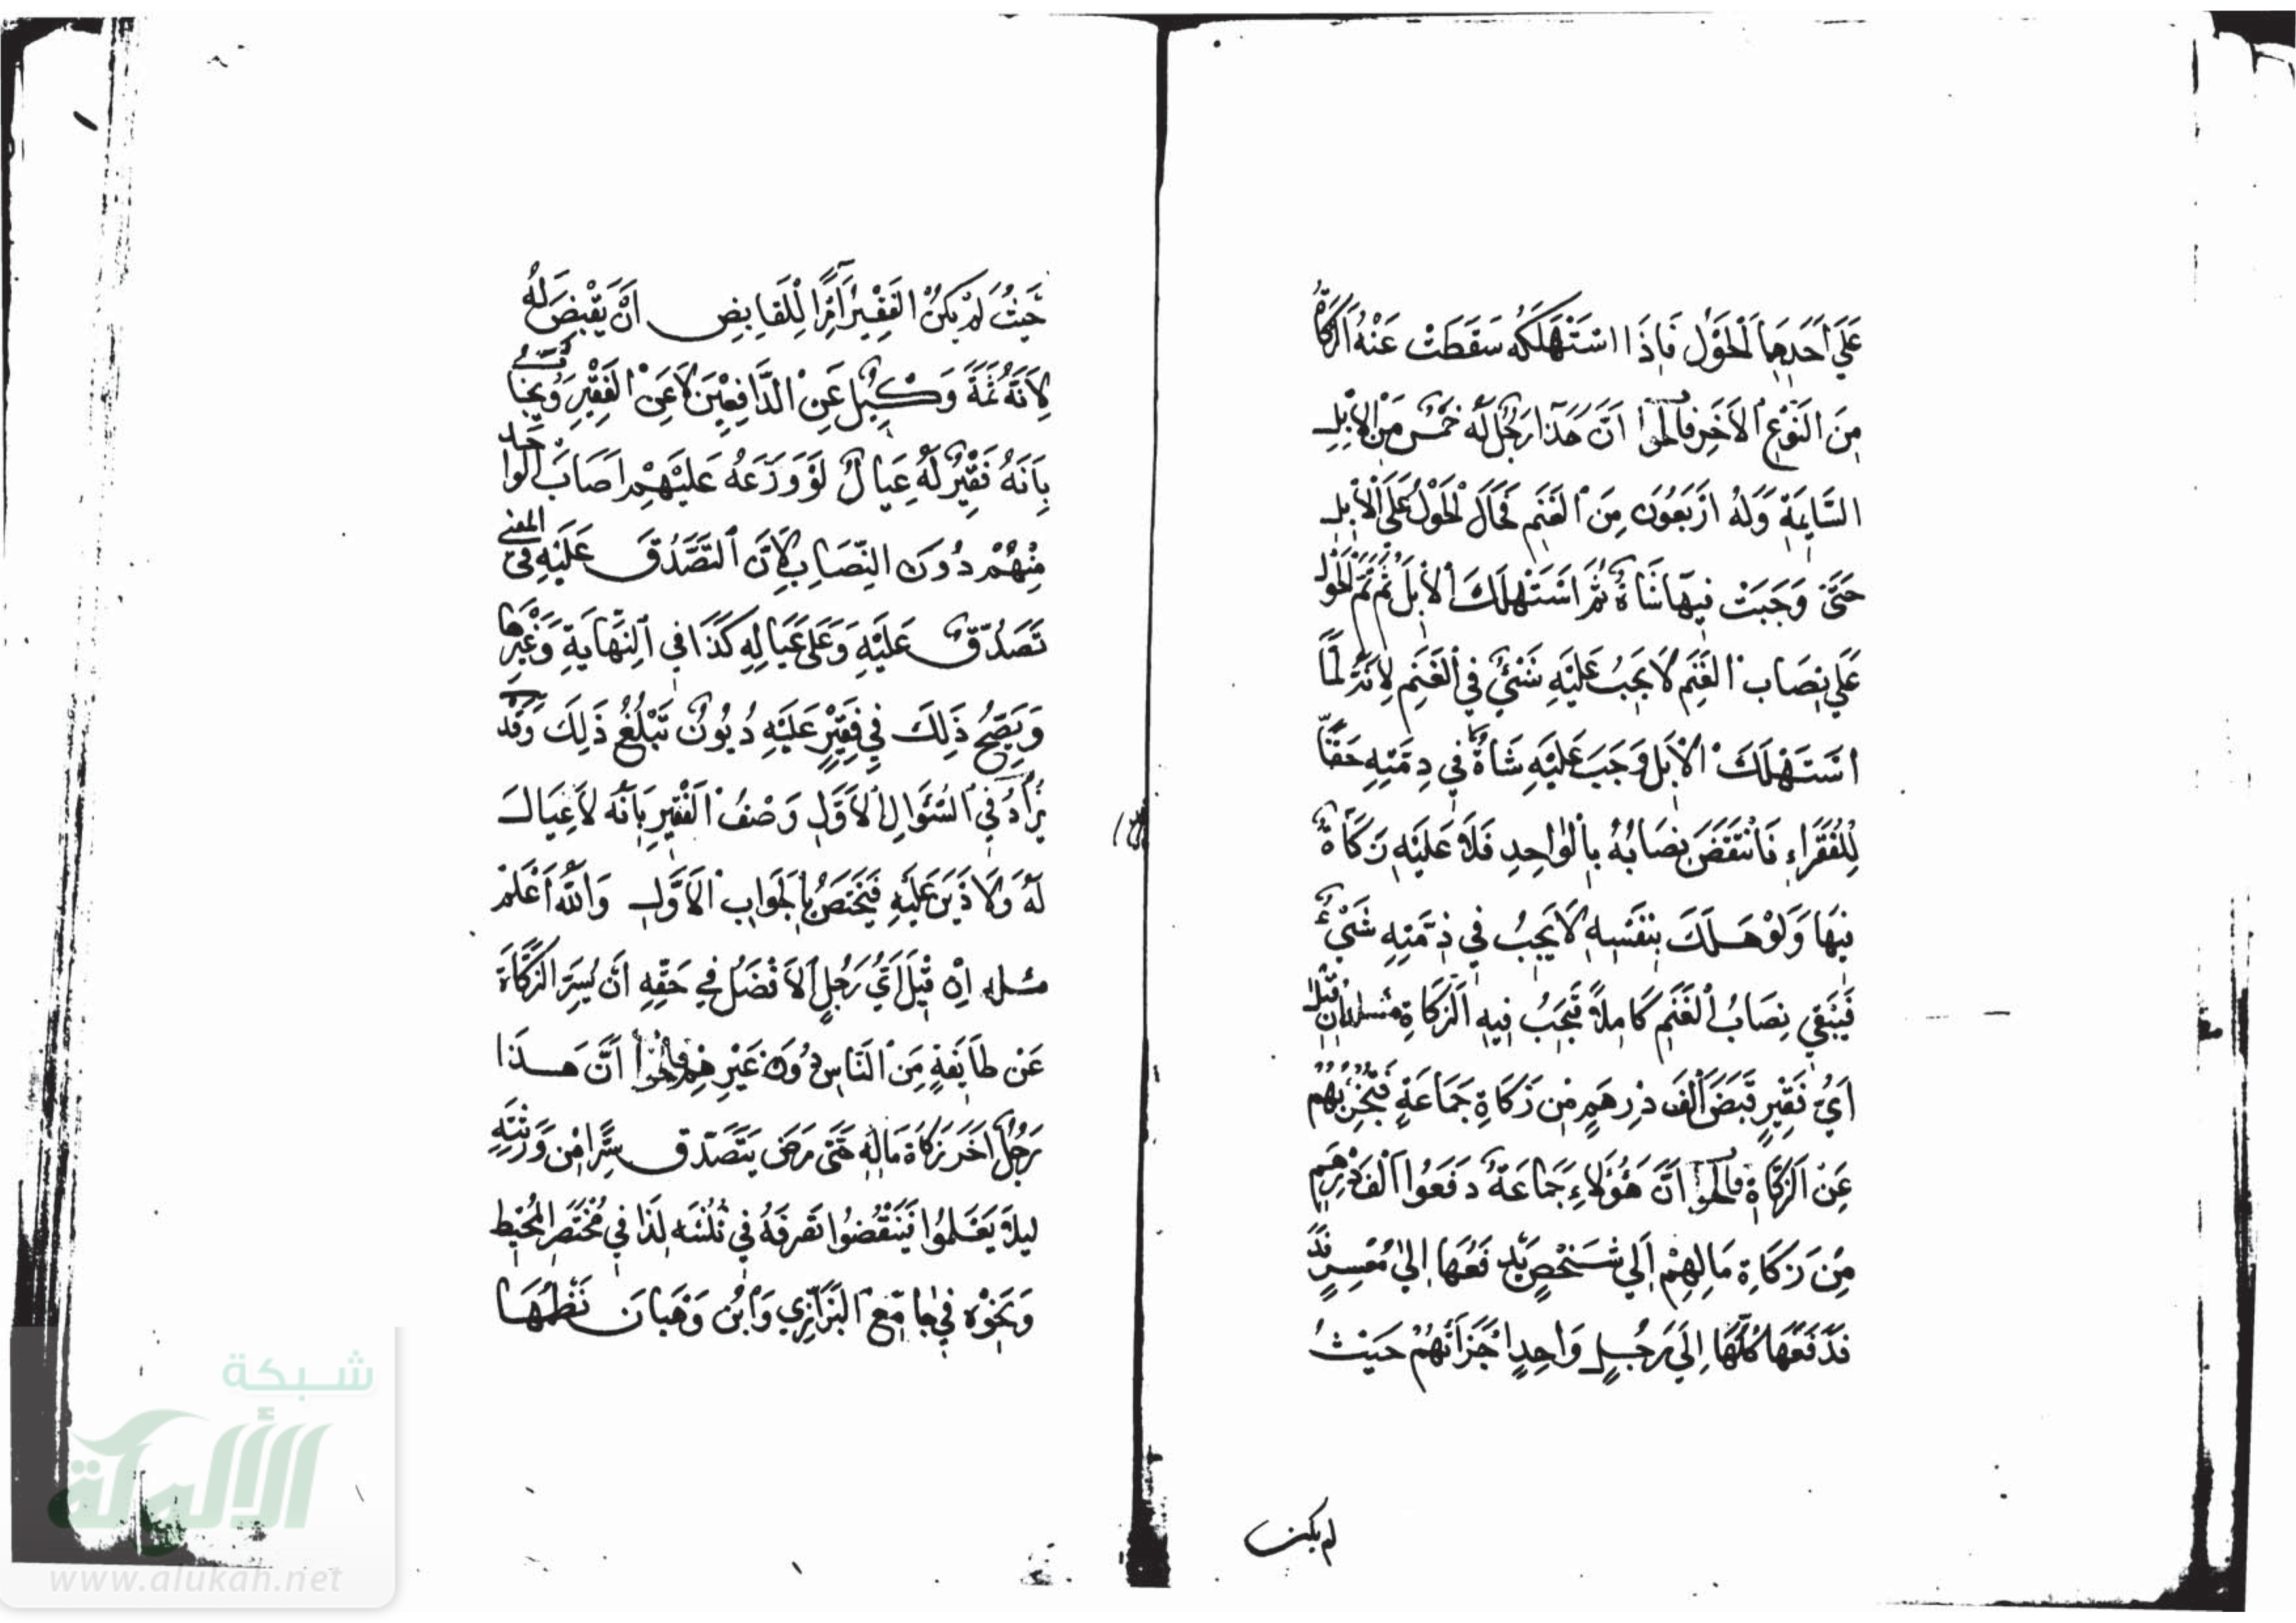 عَلَي اَحَدِهِمَا لْحَوْل فَاِذَا اسْتَهْلَكَهُ سَقَطَتْ عَنْهُ الزَكَاةُ
مِنَ النَوْعِ الاَخَرِ فالجوا اَنَّ هَذَا رَجُلٌ لَهُ خَمْسٌ مِنَ الاِبِلِ
السَّايِمَةِ وَلَهُ اَرْبَعُونَ مِنَ الغَنَمِ فَحَالَ لْحَوْلُ عَلَي الاِبِلِ
حَتَّي وَجَبَتْ فِيهَا شَاةٌ ثُمَّ اسْتَهْلَكَ الاِبِلَ ثُمَّ تَمَّ لْحَوْلُ
عَلَي نِصَاب الغَنَمِ لَا يَجِبُ عَلَيْهِ شَئْيٌ فِي الغَنَمِ لِاَنَّهُ لَمَّا
اسْتَهْلَكَ الاِبِلَ وَجَبَ عَلَيْهِ شَاةٌ فِي ذِمَّتِهِ حَقًّا
لِلْفُقَرَاءِ فَانْتَقَضَ نِصَابُهُ بِالوَاحِدِ فَلَا عَلَيْهِ زَكَاةٌ
فِيهَا وَلَوْ هَلَكَ بِنَفْسِهِ لَا يَجِبُ فِي ذِمَّتِهِ شَيْئٌ
فَيَبْقَي نِصَابُ الغَنَمِ كَامِلاً فَتَجِبُ فِيهِ الزَكَاةِ مسله اِنْ قِيْلَ
اَيُّ فَقِيْرٍ قَبَضَ اَلْفَ دِرْهَمٍ مِنْ زَكَاةِ جَمَاعَةٍ فَتُجْزِيْهُمْ
عَنْ الزَكَاةِ فالجوا اَنَّ هَؤُلَاءِ جَمَاعَةٌ دَفَعُوا اَلْفَ دِرْهَمٍ
مِنْ زَكَاةِ مَالِهِمْ اِلَي شَخْصٍ يَدْفَعُهَا اِلَيٰ مُعْسِرٍ قَدْ
فَدَفَعَهَا كُلَّهَا اِلَي رَجُلٍ وَاحِدٍ اَجْزَاَتْهُمْ حَيْثُ
لم يكن
حَيْثُ لَمْ يَكُنْ الفَقِيْرُ اٰمِرًا لِلْقَابِضِ اَنْ يَقْبِضَ لَهُ
لِاَنَّهُ ثَمَّةَ وَكِيْلٌ عَنِ الدَّافِعِيْنَ لَا عَنْ الفَقِيْرِ وَيُجَا
بِاَنَّهُ فَقِيْرٌ لَهُ عِيَالٌ لَوْ وَزَعَهُ عَلَيْهِمْ اَصَابَ الوَاحِد
مِنْهُمْ دُوْنَ النِّصَابِ لِاَنَّ التَصَدُّقَ عَلَيْهِ فِي المعني
تَصَدُّقٌ عَلَيْهِ وَعَلَي عِيَالِهِ كَذَا فِي النِّهَايَةِ وَغَيْرِهَا
وَيَصِحُّ ذَلِكَ فِي فَقِيْرٍ عَلَيْهِ دُيُوْنٌ تَبْلُغُ ذَلِكَ وَقَدْ
يُزَادُ فِي السُّئَوَالِ الاَوَّلِ وَصْفُ الفَقِيْرِ بِاَنَّهُ لَا عِيَالَ
لَهُ وَلَا دَيْنَ عَلَيْهِ فَيَخْتَصُّ بِالجَوَابِ الاَوَّلِ وَاللّٰهُ اَعْلَمْ
مسله اِنْ قِيْلَ اَيُّ رَجُلٍ اَلاَفْضَلُ فِي حَقِّهِ اَنْ يُسِرَّ الزَكَاةَ
عَنْ طَايِفَةٍ مِنَ النَاسِ دُوْنَ غَيْرِهِمْ فالجوا اَنَّ هَذَا
رَجُلٌ اَخَّرَ زَكَاةَ مَالِهِ حَتَّي مَرِضَ يَتَصَدَّق سِرًّا مِنْ وَرَثَتِهِ
لِيَلَّا يَعْلَمُوا فَيَنْقُضُوا تَصَرفَهُ فِي ثُلُثَيْهِ لَذَا فِي مُخْتَصَرِ المُحِيْطِ
وَنَحْوُه فِي جَامِعِ البَزَّازِي وَابْن وَهْبَانَ نَظْمُهَا
شبكة
الألوكة
www.alukah.net